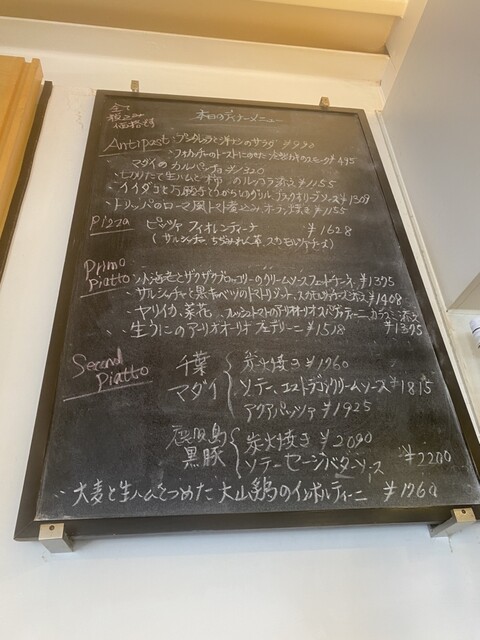 全て
税込の
価格です
本日のディナーメニュー
Antipast : ブンタレッラと洋ナシのサラダ ¥990
フォカッチャのトーストにのせた 燻製 ¥495
マダイのカルパッチョ ¥1320
切りたて生ハムと柿のルッコラ添え ¥1155
イイダコと万願寺とうがらしのグリル ブラックオリーブソース ¥1309
トリッパのローマ風トマト煮込み、オーブン焼き ¥1155
Pizza ピッツァ フィオレンティーナ ¥1628
(サルシッチャ、ちぢみほうれん草、スカモルツァチーズ)
Primo
Piatto 小海老とザクザクブロッコリーのクリームソースフェットチーネ ¥1375
サルシッチャと黒キャベツのトマトリゾット、スカモルツァチーズ添え ¥1408
ヤリイカ、菜花、フレッシュトマトのアーリオオーリオスパゲッティーニ、カラスミ添え ¥1375
生うにのアーリオオーリオ フェデリーニ ¥1518
Second
Piatto
千葉
マダイ
炭火焼き ¥1760
ソテー、エストラゴンクリームソース ¥1815
アクアパッツァ ¥1925
黒豚
炭火焼き ¥2090
ソテー セージバターソース ¥2200
大麦と生ハムをつめた 大山鶏のインボルティーニ ¥1760